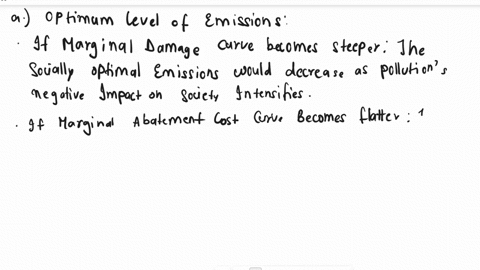 a.) Optimum level of Emissions:
· If Marginal Damage Curve becomes steeper: The
Socially optimal Emissions would decrease as pollution's
negative Impact on Society Intensifies.
· If Marginal Abatement Cost Curve Becomes flatter: 1